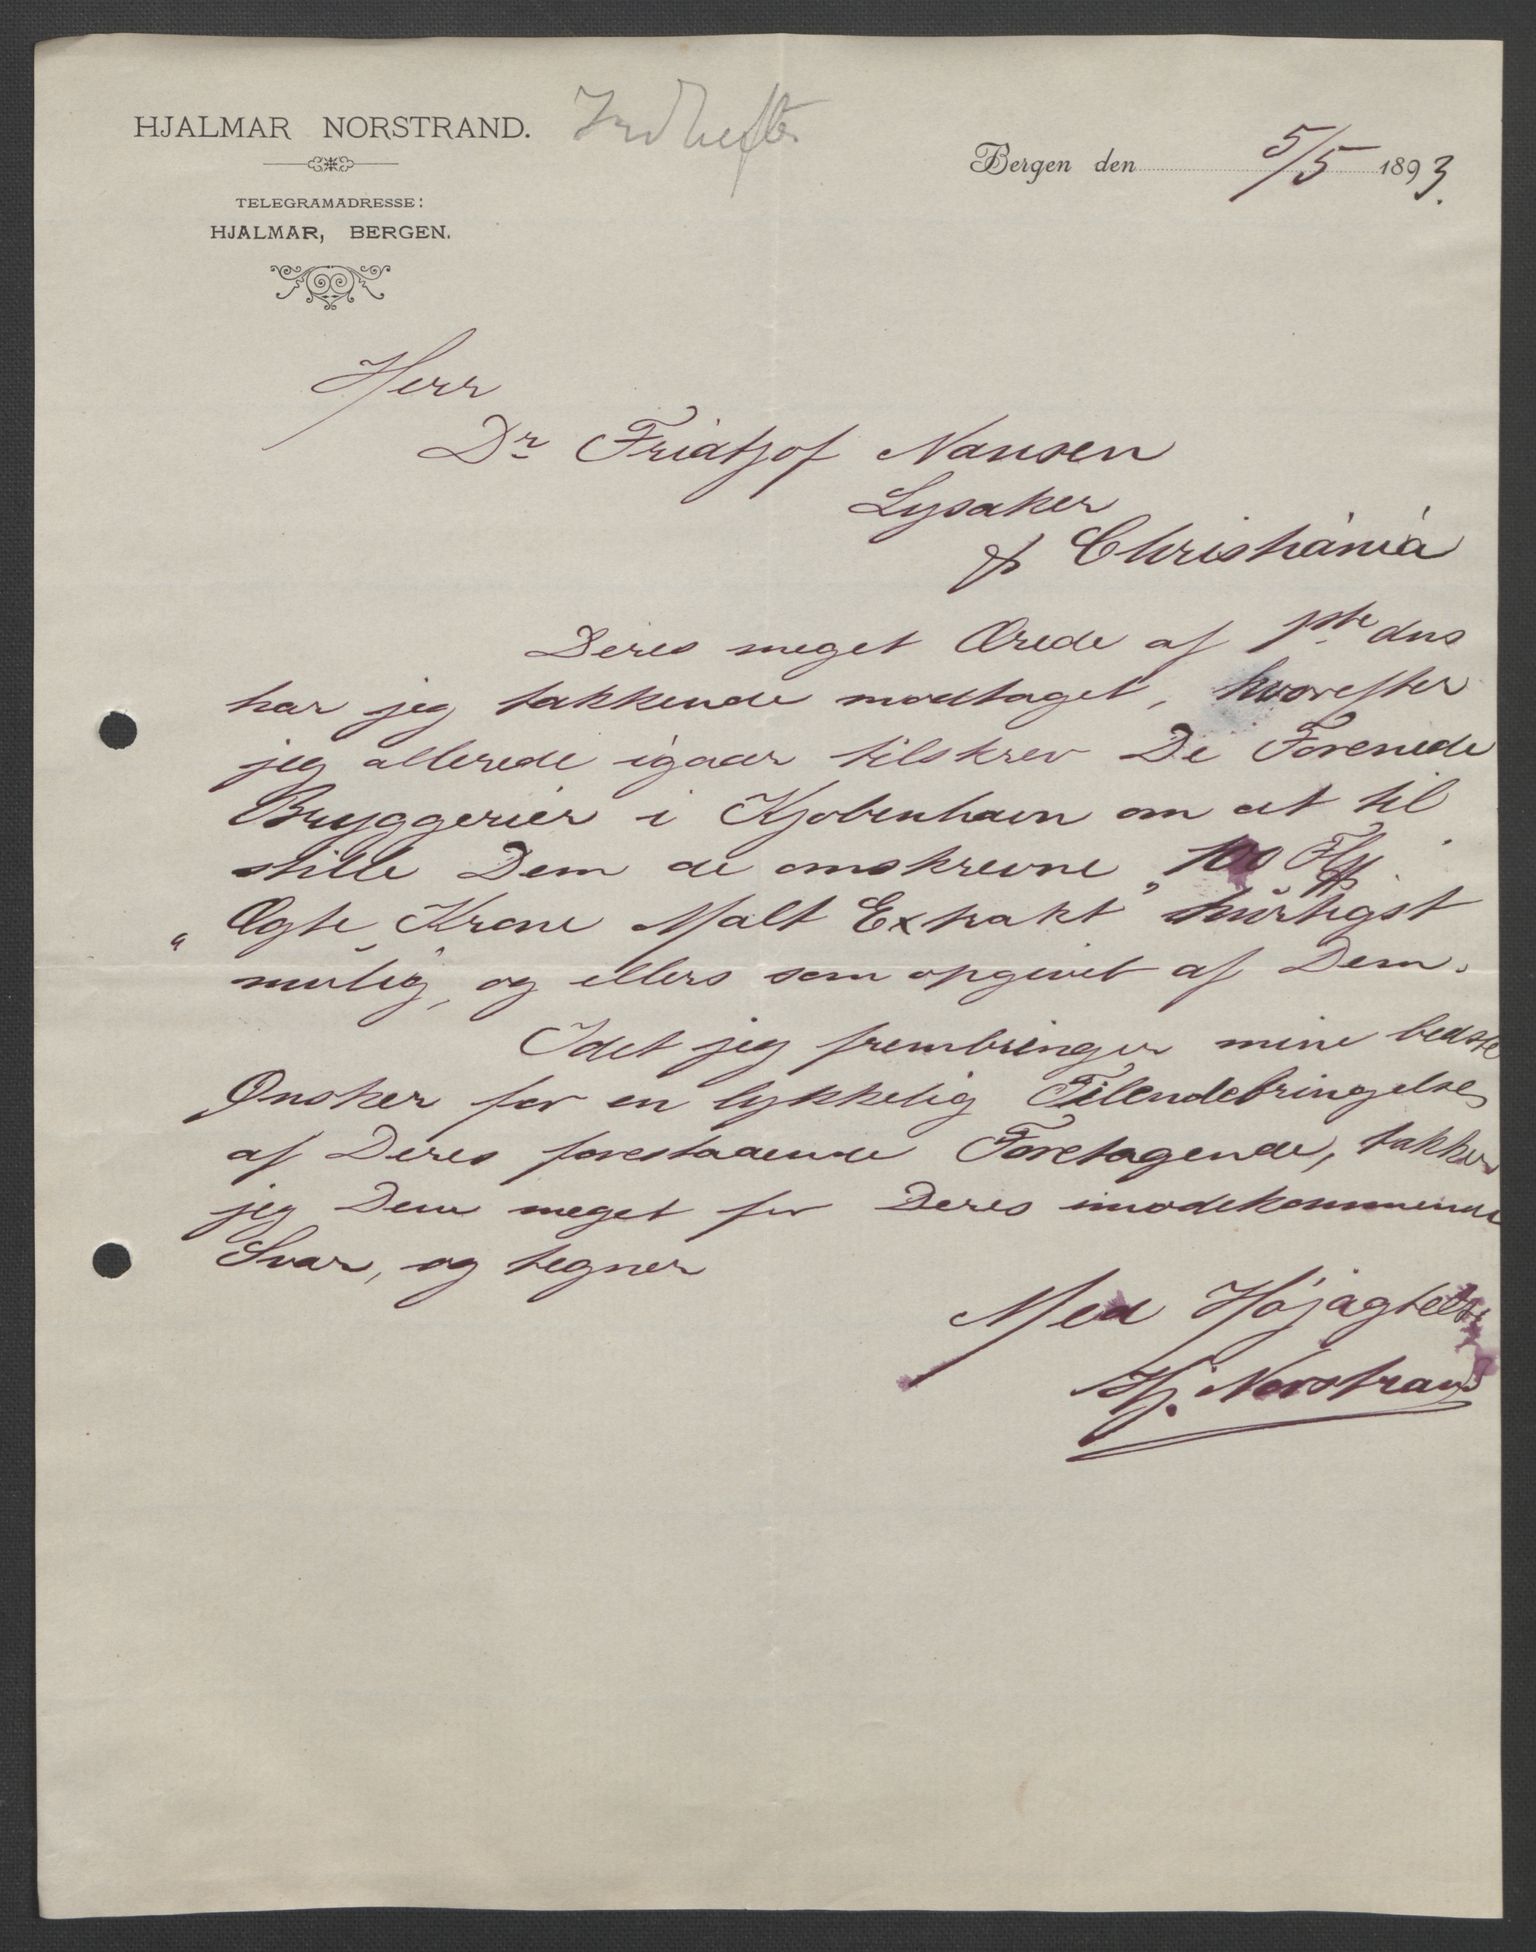 HJALMAR NORSTRAND.
Indhefte
TELEGRAMADRESSE:
HJALMAR, BERGEN.
Bergen den 5/5 1893.
Herr
Dr Fridtjof Nansen
Lysaker
p Christiania
Deres meget Ærede af 1ste dns
har jeg takkende modtaget, hvorefter
jeg allerede igaar tilskrev De Forenede
Bryggerier i Kjøbenhavn om at til
stille Dem de omskrevne 100 Fl
"Ægte Krone Malt Extrakt" hurtigst
mulig, og ellers som opgivet af Dem.
Idet jeg frembringer mine bedste
Ønsker for en lykkelig Tilendebringelse
af Deres forestaaende Foretagende, takker
jeg Dem meget for Deres imødekommende
Svar, og tegner
Med Højagtelse
Hj. Norstrand